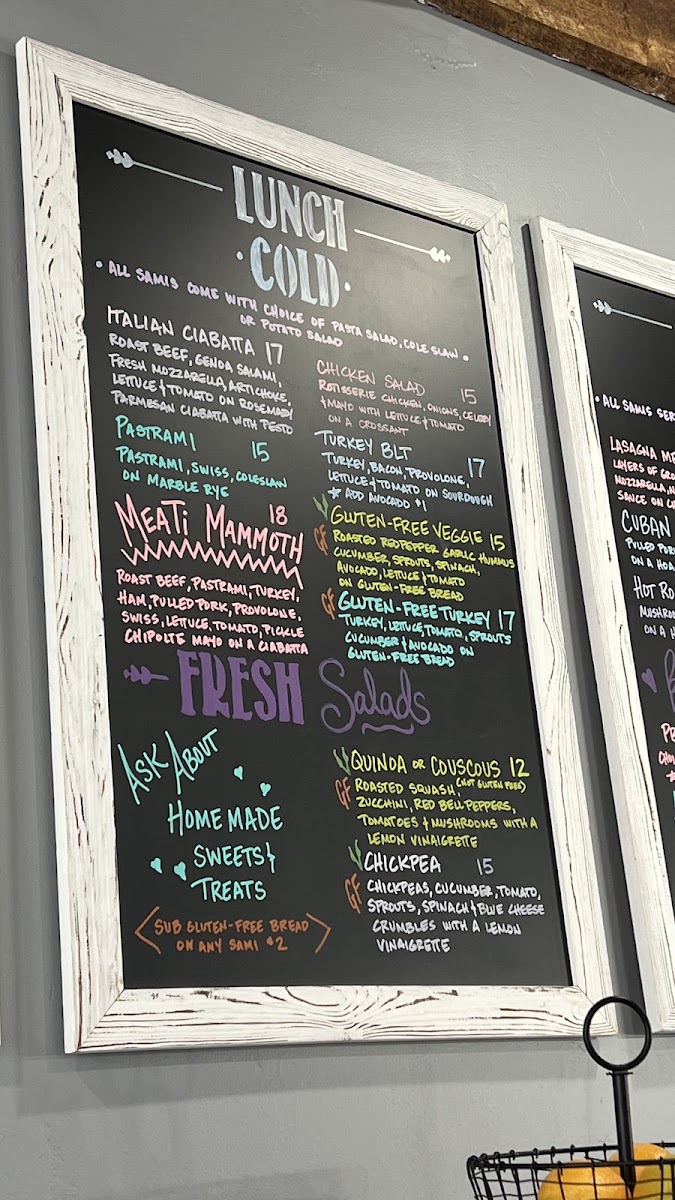 LUNCH
·COLD·
• ALL SAMIS COME WITH CHOICE OF PASTA SALAD, COLE SLAW •
OR POTATO SALAD
ITALIAN CIABATTA 17
ROAST BEEF, GENOA SALAMI,
FRESH MOZZARELLA, ARTICHOKE,
LETTUCE & TOMATO ON ROSEMARY
PARMESAN CIABATTA WITH PESTO
PASTRAMI 15
PASTRAMI, SWISS, COLESLAW
ON MARBLE RYE
MEATI MAMMOTH 18
ROAST BEEF, PASTRAMI, TURKEY,
HAM, PULLED PORK, PROVOLONE,
SWISS, LETTUCE, TOMATO, PICKLE
CHIPOLTE MAYO ON A CIABATTA
CHICKEN SALAD 15
ROTISSERIE CHICKEN, ONIONS, CELERY
& MAYO WITH LETTUCE & TOMATO
ON A CROSSANT
TURKEY BLT 17
TURKEY, BACON, PROVOLONE,
LETTUCE & TOMATO ON SOURDOUGH
★ ADD AVOCADO $1
GLUTEN-FREE VEGGIE 15
GF ROASTED RED PEPPER GARLIC HUMMUS
CUCUMBER, SPROUTS, SPINACH,
AVOCADO, LETTUCE & TOMATO
ON GLUTEN-FREE BREAD
GF GLUTEN-FREE TURKEY 17
TURKEY, LETTUCE, TOMATO, SPROUTS
CUCUMBER & AVOCADO ON
GLUTEN-FREE BREAD
FRESH Salads
ASK ABOUT
HOMEMADE
SWEETS &
TREATS
<SUB GLUTEN-FREE BREAD
ON ANY SAMI $2>
QUINOA OR COUSCOUS 12
(NOT GLUTEN FREE)
GF ROASTED SQUASH,
ZUCCHINI, RED BELL PEPPERS,
TOMATOES & MUSHROOMS WITH A
LEMON VINAIGRETTE
CHICKPEA 15
GF CHICKPEAS, CUCUMBER, TOMATO,
SPROUTS, SPINACH & BLUE CHEESE
CRUMBLES WITH A LEMON
VINAIGRETTE
• ALL SAMIS
LASAGNA
LAYERS OF
MOZZARELLA,
SAUCE ON
CUBAN
PULLED
ON A
HOT
ON A